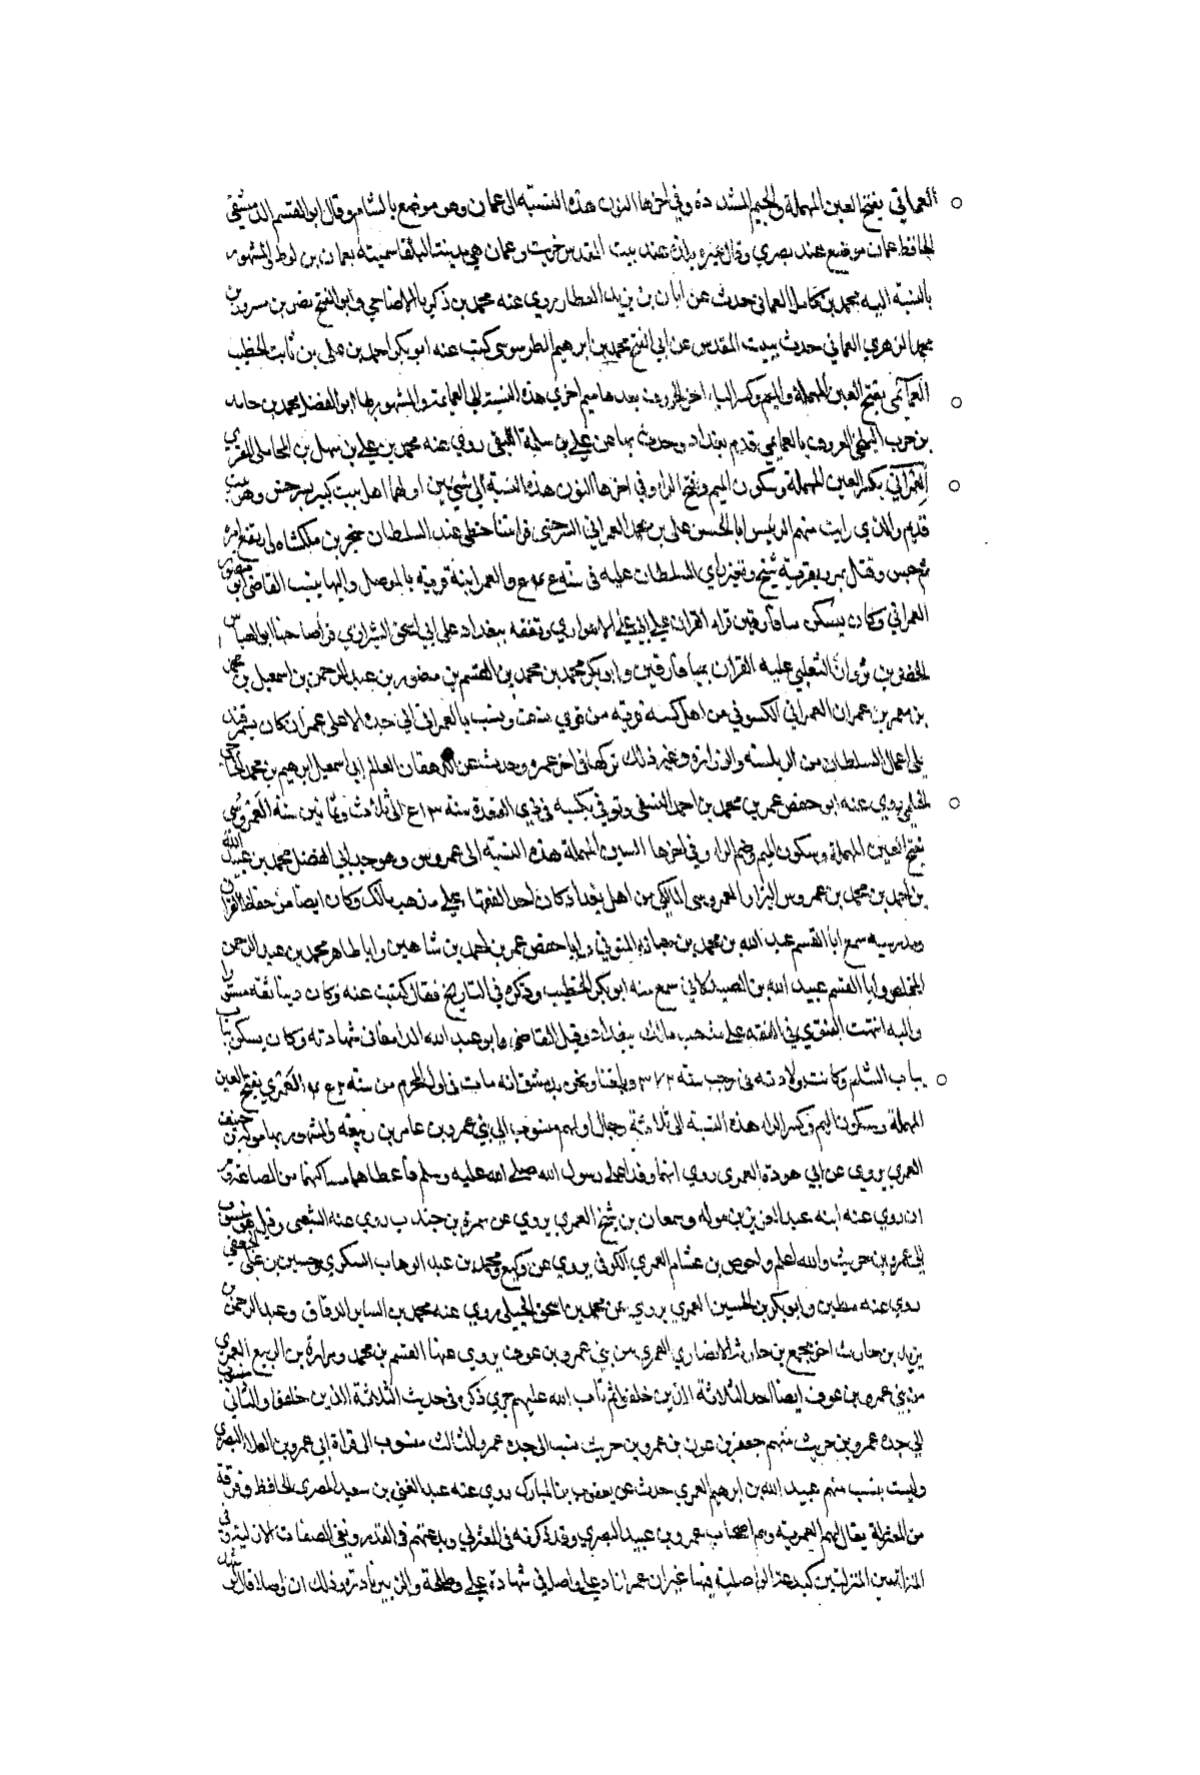 العماني بفتح العين المهملة والجيم المشددة وفي اخرها النون هذه النسبة الى عمان وهو موضع بالشام وقال ابو القسم الدمشقي
الحافظ عمان موضع عند بصري وقال غيره بلدة عند بيت المقدس خربت وعمان هي مدينة البلقا سميت بعمان بن لوط والمشهور
بالنسبة اليه محمد بن كامل العماني حدث عن ابان بن يزيد العطار روي عنه محمد بن ذكريا الاضاحي وابو الفتح نصر بن مسرور بن
محمد الزهري العماني حدث ببيت المقدس عن ابي الفتح محمد بن ابرهيم الطرسوسي كتب عنه ابو بكر احمد بن علي بن ثابت الخطيب
العمآئمي بفتح العين المهملة والميم وكسر الياء اخر الحروف بعدها ميم اخري هذه النسبة الي العمامة والمشهور بها ابو الفضل محمد بن حامد
بن حرب البلخي المعروف بالعمايمي قدم بغداد وحدث بها عن علي بن سلمة اللبقي روي عنه محمد بن علي بن سهل بن المحاملي المقري
العمراني بكسر العين المهملة وسكون الميم وفتح الرا وفي اخرها النون هذه النسبة الي شيئين اولهما اهل بيت كبير بسرخس وهو بيت
قديم والذي رايت منهم الرئيس ابا الحسن علي بن محمد العمراني السرخسي حظي عند السلطان سنجر بن ملكشاه
ثم حبس وقتل بمرو بقرية شيخ وتغير راي السلطان عليه في سنة والعمرانية قرية بالموصل واليها ينسب القاضي ابو منصور
العمراني وكان يسكن ميافارقين قراء القران علي ابي علي الاهوازي وتفقه ببغداد علي ابي اسحق الشيرازي قرأ صاحبنا ابو العباس
الخضر بن ثروان الثعلبي عليه القران بميافارقين وابو بكر محمد بن محمد بن القسم بن منصور بن عبد الرحمن بن اسمعيل بن محمد
بن معمر بن عمران العمراني الكسوني من اهل كسبه قرية من قري نسف وينسب بالعمراني الي جده الاعلي عمران كان بسمرقند
يلي اعمال السلطان من الرياسة والوزارة وغير ذلك تركها في اخر عمره وحدث عن الدهقان العالم ابي اسمعيل ابرهيم بن محمد الحاجي
الخليلي روي عنه ابو حفص عمر بن محمد بن احمد النسفي وتوفي بكسبه في ذي القعدة سنة الي ثلاث وثمانين سنة العمروسي
بفتح العين المهملة وسكون الميم وضم الراء وفي اخرها السين المهملة هذه النسبة الى عمروس وهو جد ابي الفضل محمد بن عبيد الله
بن احمد بن محمد بن عمروس البزار العمروسي المالكي من اهل بغداد كان احد الفقها علي مذهب مالك وكان ايضا من حفاظ القران
ومدرسيه سمع ابا القسم عبد الله بن محمد بن حبابه المتوفي وابا حفص عمر بن احمد بن شاهين وابا طاهر محمد بن عبد الرحمن
المخلص وابا القسم عبيد الله بن الصيدلاني سمع منه ابو بكر الخطيب وذكره في التاريخ فقال كتبت عنه وكان دينا ثقة مستورا
واليه انتهت الفتوي في الفقه علي مذهب مالك ببغداد وقبل القاضي ابو عبد الله الدامغاني شهادته وكان يسكن بباب
بباب الشام وكانت ولادته في رجب سنة ٣٧٢ وبلغنا ونحن بدمشق انه مات في اول المحرم من سنة العمري بفتح العين
المهملة وسكون الميم وكسر الراء هذه النسبة الى ثلاثة رجال اولهم منسوب الي بني عمرو بن عامر بن ربيعه والمشهور بها مولة بن حنيف
العمري يروي عن ابي هوذة العمري روي انهما وفدا علي رسول الله صلي الله عليه وسلم فاعطاهما مساكنهما من
روي عنه ابنه عبد العزيز بن موله وسمعان بن مشنج العمري يروي عن سمرة بن جندب روي عنه الشعبي وقيل هو منسوب
الى عمرو بن حريث والله اعلم واحوص بن هشام العمري الكوفي يروي عن وكيع ومحمد بن عبد الوهاب السكري وحسين بن علي الجعفي
روي عنه مطين وابو بكر بن الحسين العمري يروي عن محمد بن اسحق الجبيلي روي عنه محمد بن الساير الدقاق وعبد الرحمن بن
يزيد بن حارث اخو مجمع بن حارث الانصاري العمري من بني عمرو بن عوف يروي عنها القسم بن محمد ومرارة بن الربيع العمري
من بني عمرو بن عوف ايضا احد الثلاثة الذين خلفوا ثم تاب الله عليهم جري ذكره في حديث الثلاثة الذين خلفوا والثاني منسوب
الي جده عمرو بن حريث منهم جعفر بن عون بن عمرو بن حريث نسب الي جده عمرو والثالث منسوب الى قراة ابي عمرو بن العلا البصري
وليست بنسب منهم عبيد الله بن ابرهيم العمري حدث عن يعقوب بن المبارك روي عنه عبد الغني بن سعيد المصري الحافظ وفرقة
من المعتزلة يقال لهم العمرية وهم اصحاب عمرو بن عبيد البصري وقد ذكرته في المعتزلي وبدعتهم في القدر ونفي الصفات
المنزلة بين المنزلتين كبدعة الواصلية فيها غير ان عمرا زاد علي واصل في شهادة علي وطلحة والزبير وذلك ان واصلا قال